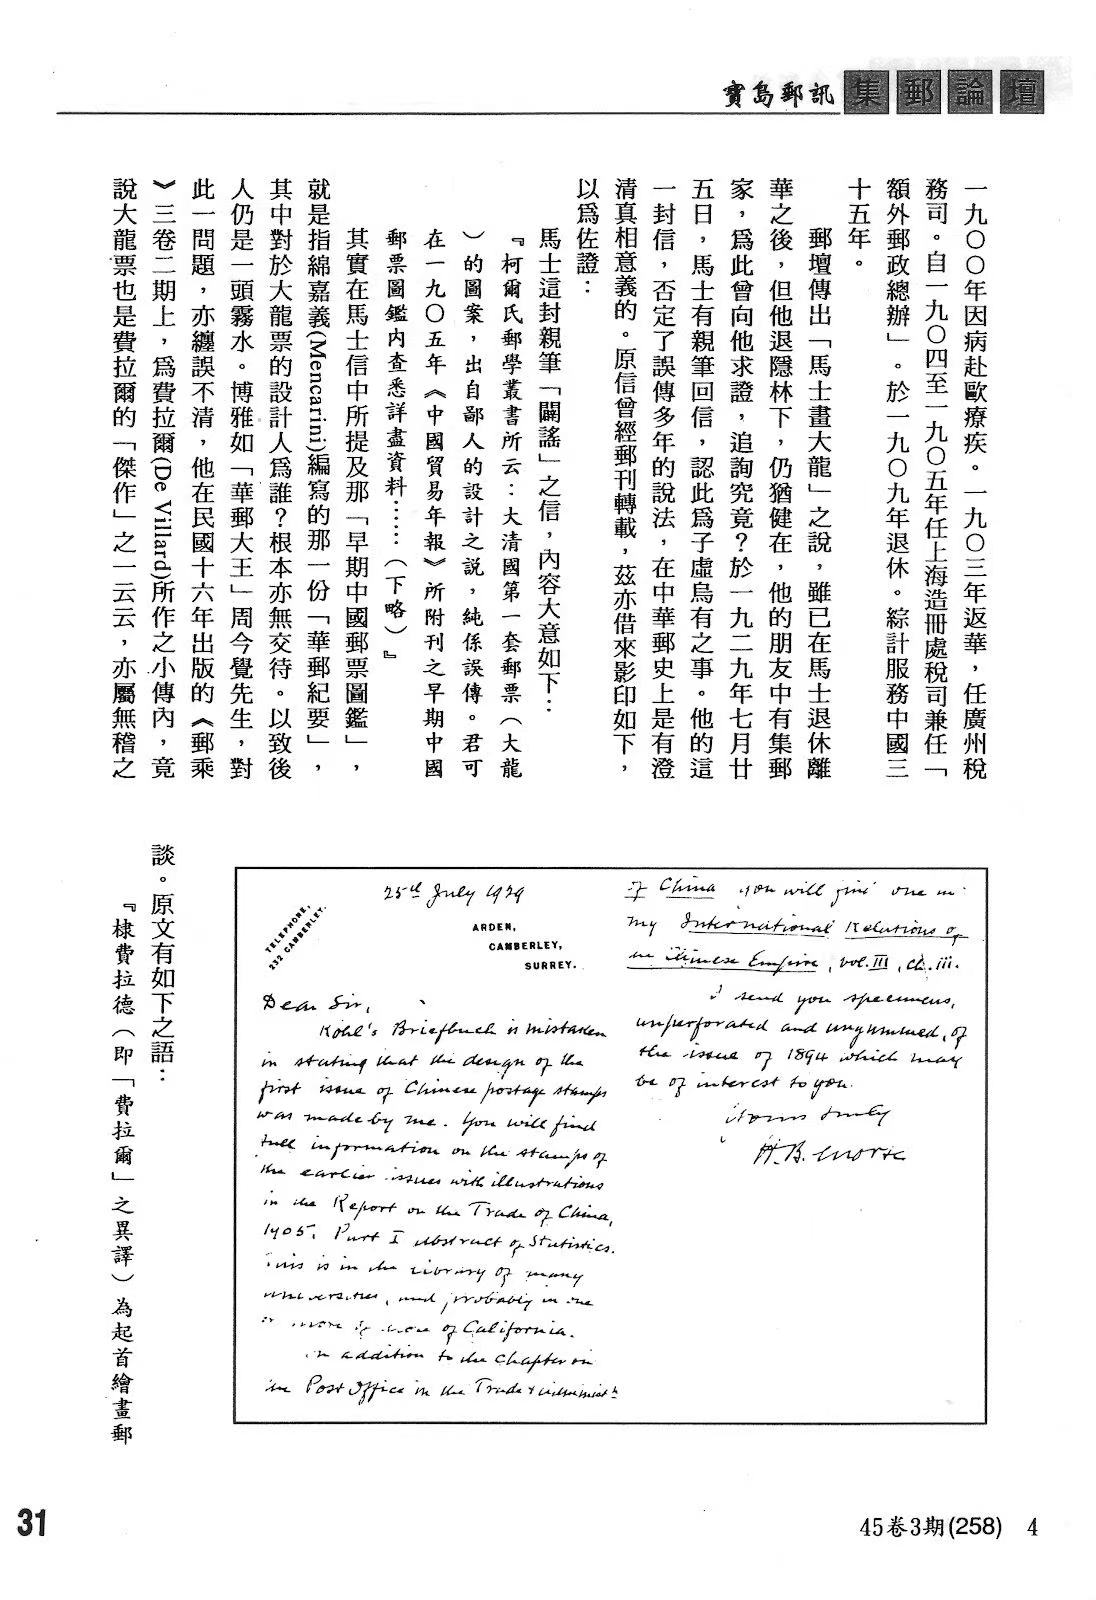 寶島郵訊 集郵論壇
一九〇〇年因病赴歐療疾。一九〇三年返華，任廣州稅
務司。自一九〇四至一九〇五年任上海造冊處稅司兼任「
額外郵政總辦」。於一九〇九年退休。綜計服務中國三
十五年。
郵壇傳出「馬士畫大龍」之說，雖已在馬士退休離
華之後，但他退隱林下，仍猶健在，他的朋友中有集郵
家，為此曾向他求證，追詢究竟？於一九二九年七月廿
五日，馬士有親筆回信，認此為子虛烏有之事。他的這
一封信，否定了誤傳多年的說法，在中華郵史上是有澄
清真相意義的。原信曾經郵刊轉載，茲亦借來影印如下，
以為佐證：
馬士這封親筆「闢謠」之信，內容大意如下：
『柯爾氏郵學叢書所云：大清國第一套郵票（大龍
）的圖案，出自鄙人的設計之說，純係誤傳。君可
在一九〇五年《中國貿易年報》所附刊之早期中國
郵票圖鑑內查悉詳盡資料……（下略）』
其實在馬士信中所提及那「早期中國郵票圖鑑」，
就是指綿嘉義(Mencarini)編寫的那一份「華郵紀要」，
其中對於大龍票的設計人為誰？根本亦無交待。以致後
人仍是一頭霧水。博雅如「華郵大王」周今覺先生，對
此一問題，亦纏誤不清，他在民國十六年出版的《郵乘
》三卷二期上，為費拉爾(De Villard)所作之小傳內，竟
說大龍票也是費拉爾的「傑作」之一云云，亦屬無稽之
談。原文有如下之語：
『棣費拉德（即「費拉爾」之異譯）為起首繪畫郵
25th July 1929
TELEPHONE,
232 CAMBERLEY.
ARDEN,
CAMBERLEY,
SURREY.
Dear Sir,
Kohl's Briefbuch is mistaken
in stating that the design of the
first issue of Chinese postage stamps
was made by me. You will find
full information on the stamps of
the earlier issues with illustrations
in the Report on the Trade of China,
1905, Part I Abstract of Statistics.
This is in the Library of many
universities, and probably in one
or more of California.
In addition to the Chapter on
the Post Office in the Trade &
of China you will find one in
my International Relations of
the Chinese Empire, vol. III, ch. iii.
I send you specimens,
unperforated and ungummed, of
the issue of 1894 which may
be of interest to you.
Yours truly
H. B. Morse
31
45卷3期(258) 4